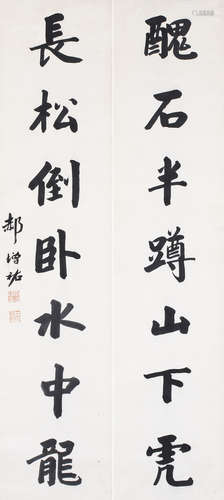 醜石半蹲山下虎
長松倒臥水中龍
郝增祐